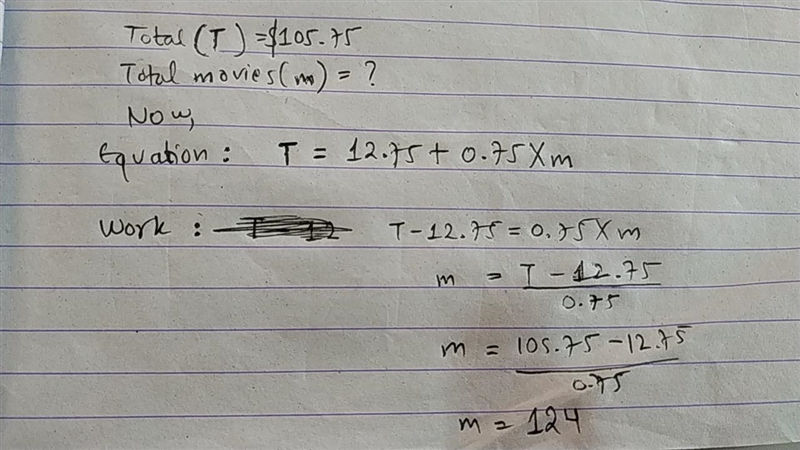 Total (T) = $105.75
Total movies (m) = ?
Now,
Equation: T = 12.75 + 0.75 X m
Work: T - 12.75 = 0.75 X m
m = T - 12.75
0.75
m = 105.75 - 12.75
0.75
m = 124